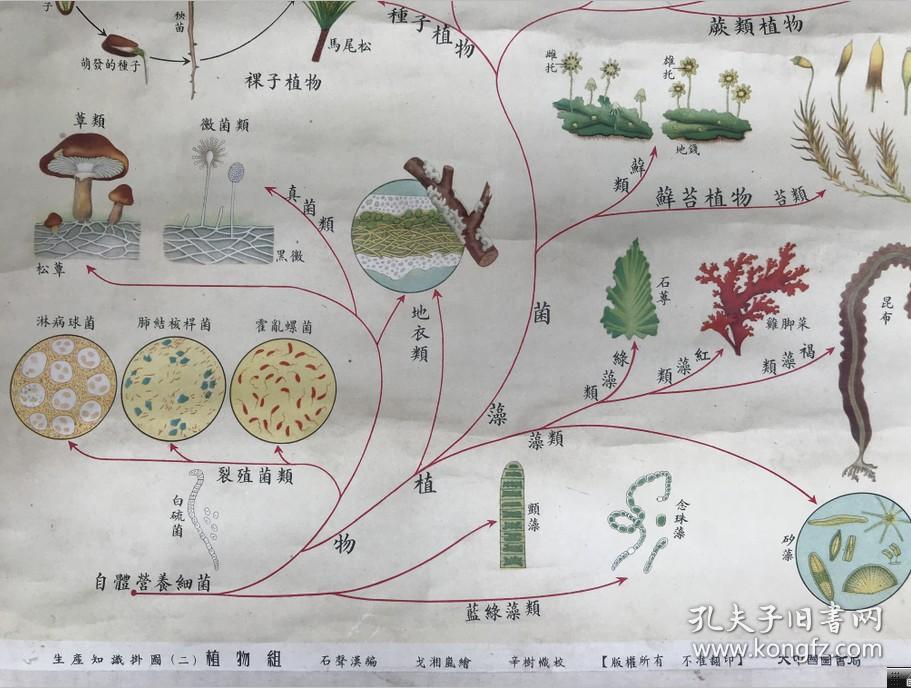 子
秧苗
萌發的種子
馬尾松
裸子植物
種子植物
蕨類植物
雌托
雄托
地錢
蘚類
蘚苔植物
苔類
蕈類
黴菌類
真菌類
松蕈
黑黴
地衣類
菌
石蓴
雞脚菜
昆布
綠藻類
紅藻類
褐藻類
淋病球菌
肺結核桿菌
霍亂螺菌
裂殖菌類
藻
藻類
植
物
白硫菌
顫藻
念珠藻
矽藻
自體營養細菌
藍綠藻類
生產知識掛圖(二) 植物組 石聲漢編 戈湘嵐繪 辛樹幟校 【版權所有 不准翻印】 大中國圖書局
孔夫子旧书网
www.kongfz.com